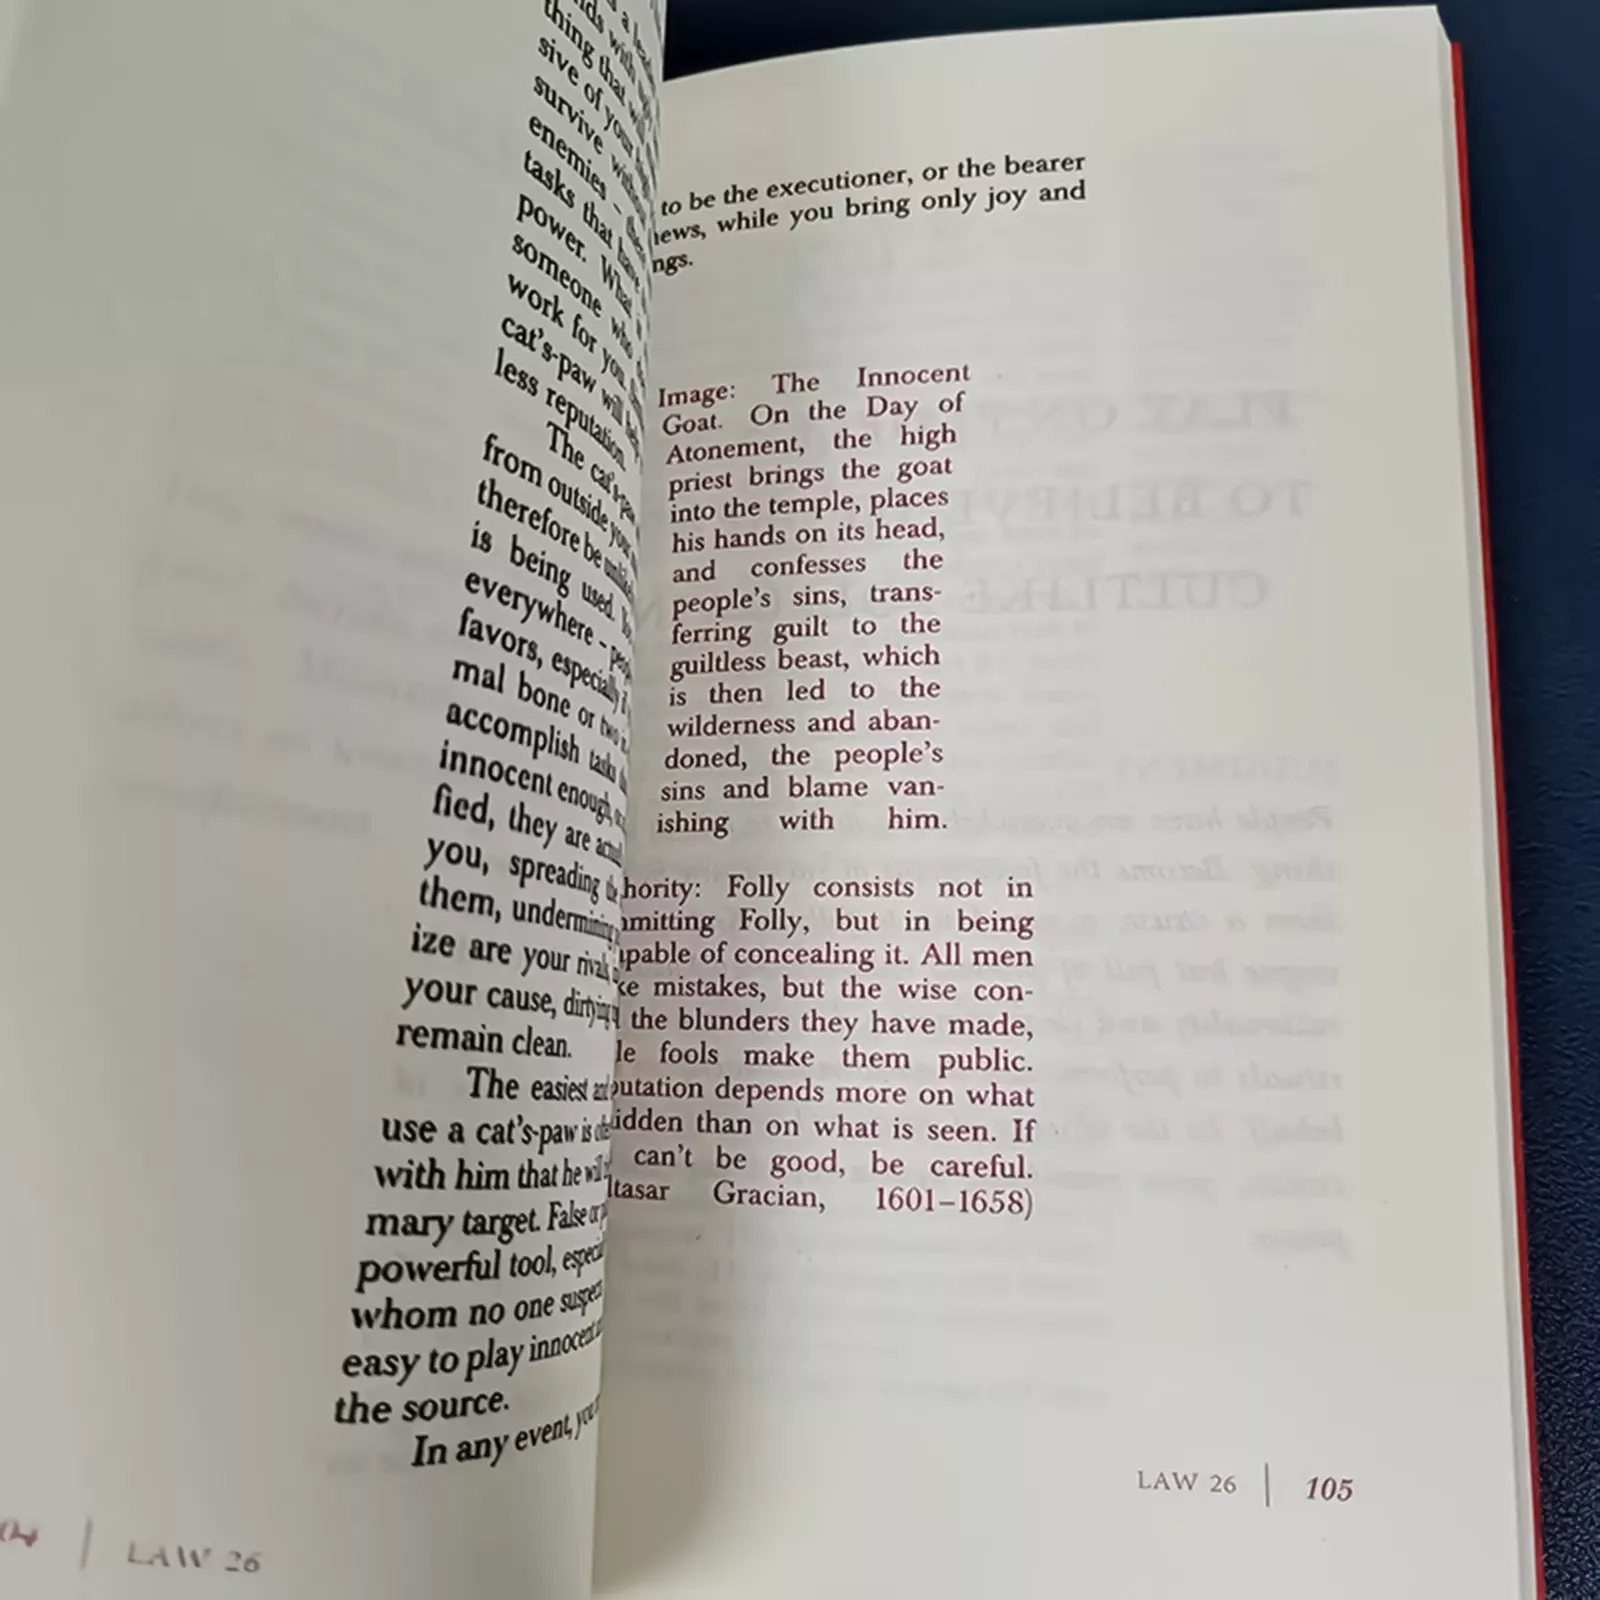 thing that will
sive of your
survive without
enemies –
tasks that have
power. What is
someone who
work for you.
cat's-paw will help
less reputation.
The cat's-paw
from outside your
therefore be unlikely
is being used.
everywhere –
favors, especially if
mal bone or two
accomplish tasks
innocent enough,
fied, they are
you, spreading
them, undermining
ize are your rivals,
your cause, dirtying
remain clean.
The easiest and
use a cat's-paw is
with him that he will
mary target. False or
powerful tool,
whom no one
easy to play innocent
the source.
In any event, you
LAW 26
to be the executioner, or the bearer
news, while you bring only joy and
ngs.
Image: The Innocent
Goat. On the Day of
Atonement, the high
priest brings the goat
into the temple, places
his hands on its head,
and confesses the
people's sins, trans-
ferring guilt to the
guiltless beast, which
is then led to the
wilderness and aban-
doned, the people's
sins and blame van-
ishing with him.
hority: Folly consists not in
mmitting Folly, but in being
apable of concealing it. All men
ke mistakes, but the wise con-
the blunders they have made,
le fools make them public.
putation depends more on what
idden than on what is seen. If
can't be good, be careful.
ltasar Gracian, 1601–1658)
LAW 26 | 105